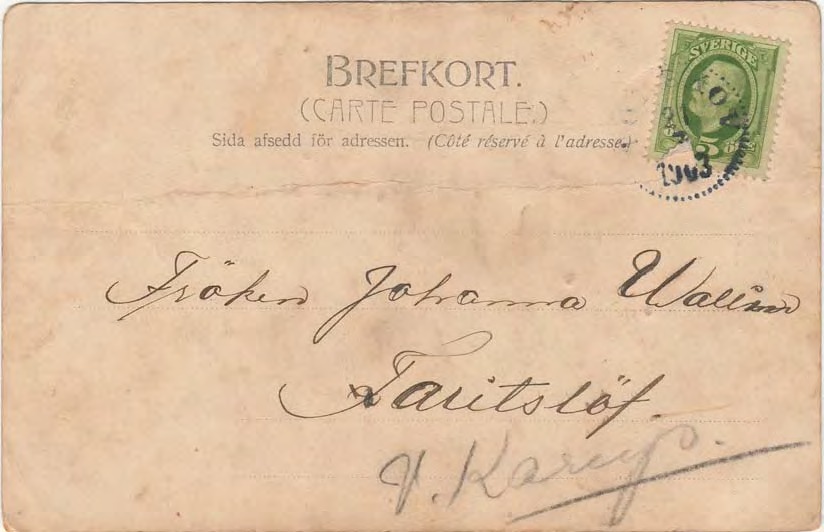 BREFKORT.
(CARTE POSTALE.)
Sida afsedd för adressen. (Côté réservé à l'adresse.)
SVERIGE
1903
Fröken Johanna Wallin
Faritslöf.
V. Karup.